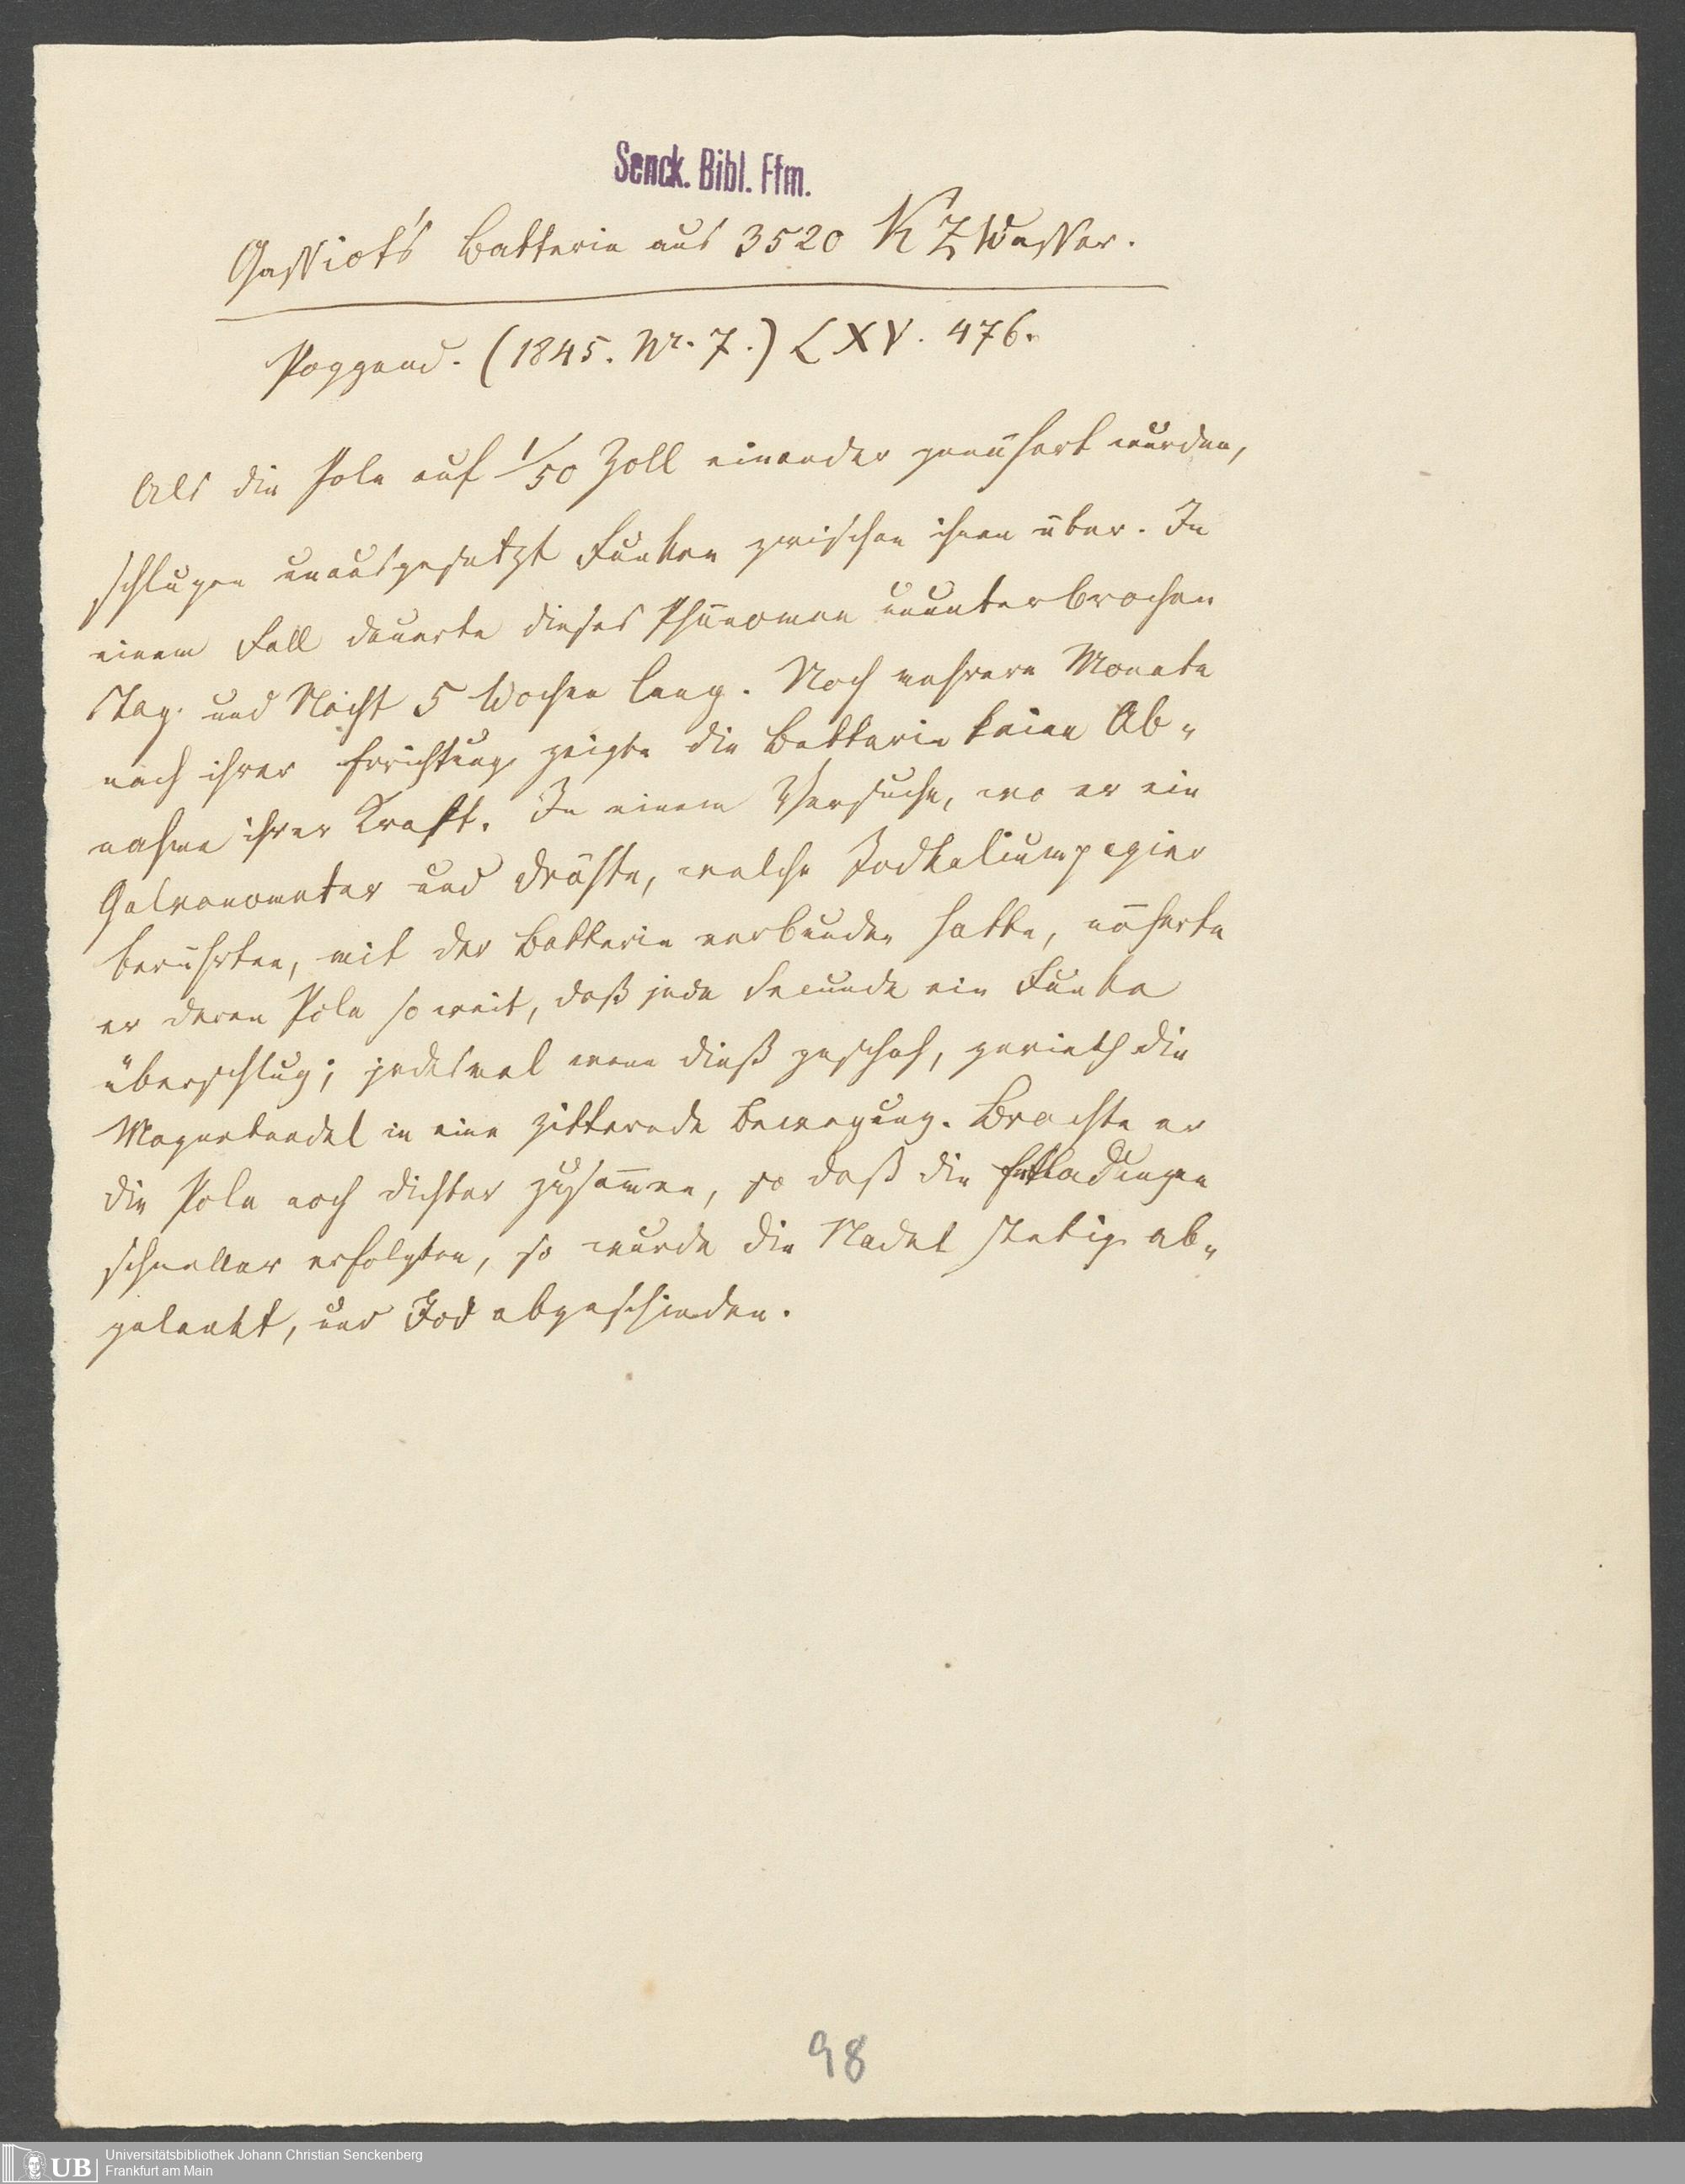 Senck. Bibl. Ffm.
Gassiot's Batterie aus 3520 K Z Wasser.
Poggend. (1845. Nr. 7.) LXV. 476.
Als die Pole auf 1/50 Zoll einander genähert wurden,
schlugen unausgesetzt Funken zwischen ihnen über. In
einem Fall dauerte dieses Phänomen ununterbrochen
Tag und Nacht 5 Wochen lang. Noch mehrere Monate
nach ihrer Errichtung zeigte die Batterie keine Ab-
nahme ihrer Kraft. In einem Versuche, wo er ein
Galvanometer und Drähte, welche Jodkaliumpapier
berührten, mit der Batterie verbunden hatte, näherte
er deren Pole so weit, daß jede Secunde ein Funke
überschlug; jedesmal wenn dieß geschah, gerieth die
Magnetnadel in eine zitternde Bewegung. Brachte er
die Pole noch dichter zusam̄en, so daß die Entladungen
schneller erfolgten, so wurde die Nadel stetig ab-
gelenkt, und Jod abgeschieden.
98
UB
Universitätsbibliothek Johann Christian Senckenberg
Frankfurt am Main